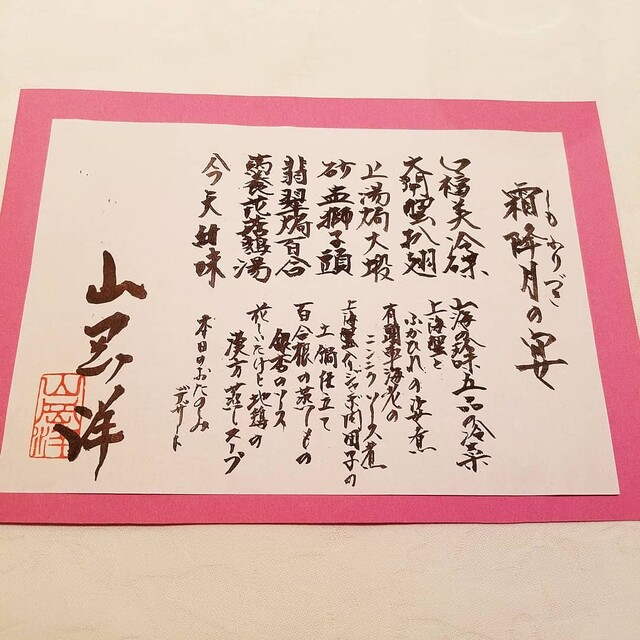 霜降月の宴
しもふりづき
福美冷碟
山海の珍味五品の冷菜
大閘蟹扒翅
上海蟹と
ふかひれの姿煮
上湯焗大蝦
有頭車海老の
ニンニクソース煮
砂盅獅子頭
上海蟹入りジャンボ肉団子の
土鍋仕立て
翡翠燴百合
百合根の蒸しもの
銀杏のソース
養花菇鶏湯
花しいたけと地鶏の
漢方蒸しスープ
今天甜味
本日のおたのしみ
デザート
山岡洋
山岡洋